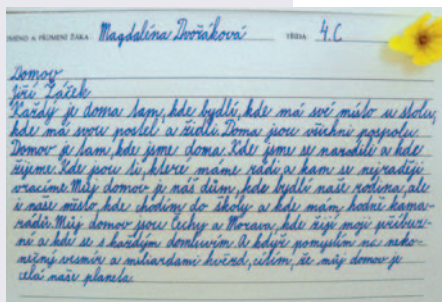 JMÉNO A PŘÍJMENÍ ŽÁKA Magdaléna Dvořáková TŘÍDA 4.C
Domov
Jiří Žáček
Každý je doma tam, kde bydlí, kde má své místo u stolu,
kde má svou postel a židli. Doma jsou všichni pospolu.
Domov je tam, kde jsme doma. Kde jsme se narodili a kde
žijeme. Kde jsou ti, které máme rádi a kam se nejraději
vracíme. Můj domov je náš dům, kde bydlí naše rodina, ale
i naše město, kde chodím do školy a kde mám hodně kama-
rádů. Můj domov jsou Čechy a Morava, kde žijí moji příbuz-
ní a kde se s každým domluvím. A když pomyslím na neko-
nečný vesmír a miliardami hvězd, cítím, že můj domov je
celá naše planeta.